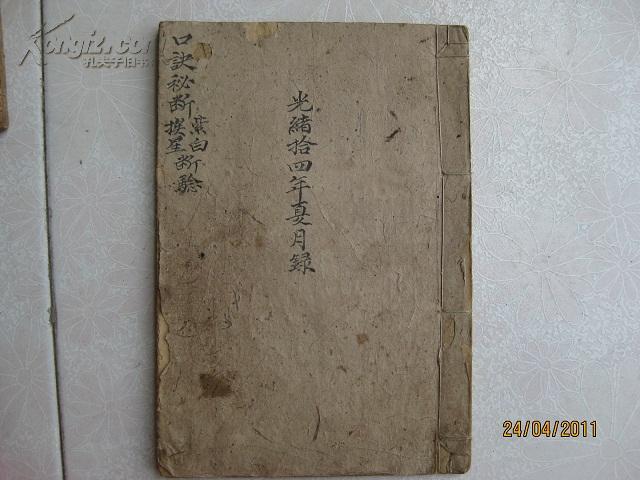 光緒拾四年夏月録
口訣秘断
紫白断
挨星断驗
Kongfz.com
孔夫子旧书网
24/04/2011